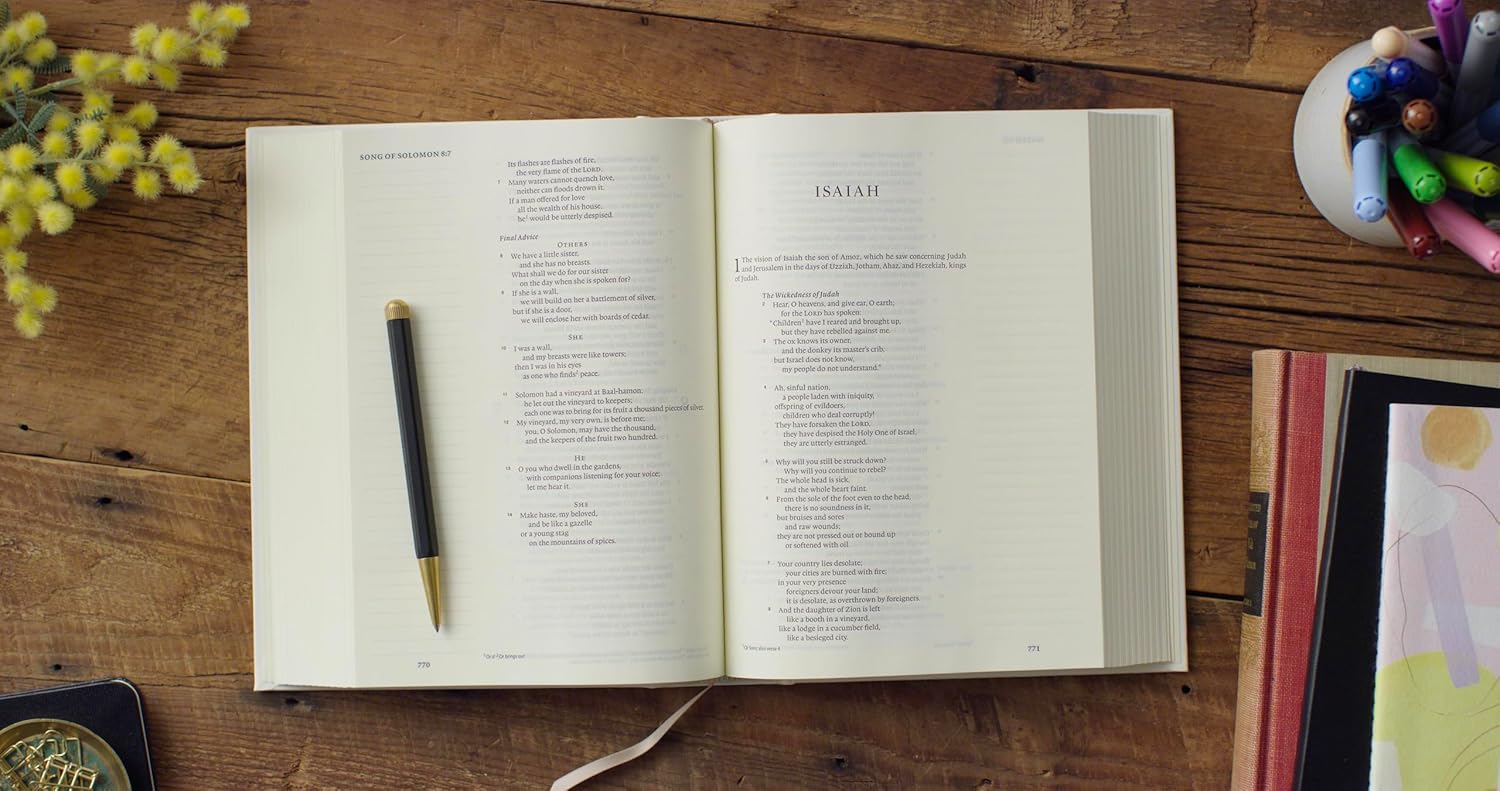 SONG OF SOLOMON 8:7
Its flashes are flashes of fire,
the very flame of the LORD.
7 Many waters cannot quench love,
neither can floods drown it.
If a man offered for love
all the wealth of his house,
he¹ would be utterly despised.
Final Advice
OTHERS
8 We have a little sister,
and she has no breasts.
What shall we do for our sister
on the day when she is spoken for?
9 If she is a wall,
we will build on her a battlement of silver,
but if she is a door,
we will enclose her with boards of cedar.
SHE
10 I was a wall,
and my breasts were like towers;
then I was in his eyes
as one who finds² peace.
11 Solomon had a vineyard at Baal-hamon;
he let out the vineyard to keepers;
each one was to bring for its fruit a thousand pieces of silver.
12 My vineyard, my very own, is before me;
you, O Solomon, may have the thousand,
and the keepers of the fruit two hundred.
HE
13 O you who dwell in the gardens,
with companions listening for your voice;
let me hear it.
SHE
14 Make haste, my beloved,
and be like a gazelle
or a young stag
on the mountains of spices.
¹ Or it ² Or brings out
770
ISAIAH
1 The vision of Isaiah the son of Amoz, which he saw concerning Judah
and Jerusalem in the days of Uzziah, Jotham, Ahaz, and Hezekiah, kings
of Judah.
The Wickedness of Judah
2 Hear, O heavens, and give ear, O earth;
for the LORD has spoken:
"Children¹ have I reared and brought up,
but they have rebelled against me.
3 The ox knows its owner,
and the donkey its master's crib,
but Israel does not know,
my people do not understand."
4 Ah, sinful nation,
a people laden with iniquity,
offspring of evildoers,
children who deal corruptly!
They have forsaken the LORD,
they have despised the Holy One of Israel,
they are utterly estranged.
5 Why will you still be struck down?
Why will you continue to rebel?
The whole head is sick,
and the whole heart faint.
6 From the sole of the foot even to the head,
there is no soundness in it,
but bruises and sores
and raw wounds;
they are not pressed out or bound up
or softened with oil.
7 Your country lies desolate;
your cities are burned with fire;
in your very presence
foreigners devour your land;
it is desolate, as overthrown by foreigners.
8 And the daughter of Zion is left
like a booth in a vineyard,
like a lodge in a cucumber field,
like a besieged city.
¹ Or Sons; also verse 4
771